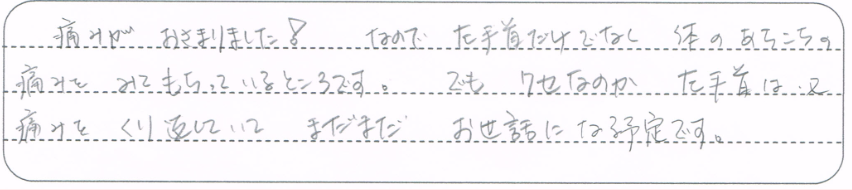 痛みが おさまりました! なので 左手首だけでなし 体のあちこちの
痛みを みてもらっているところです。 でも クセなのか 左手首は 又
痛みを くり返していて まだまだ お世話になる予定です。